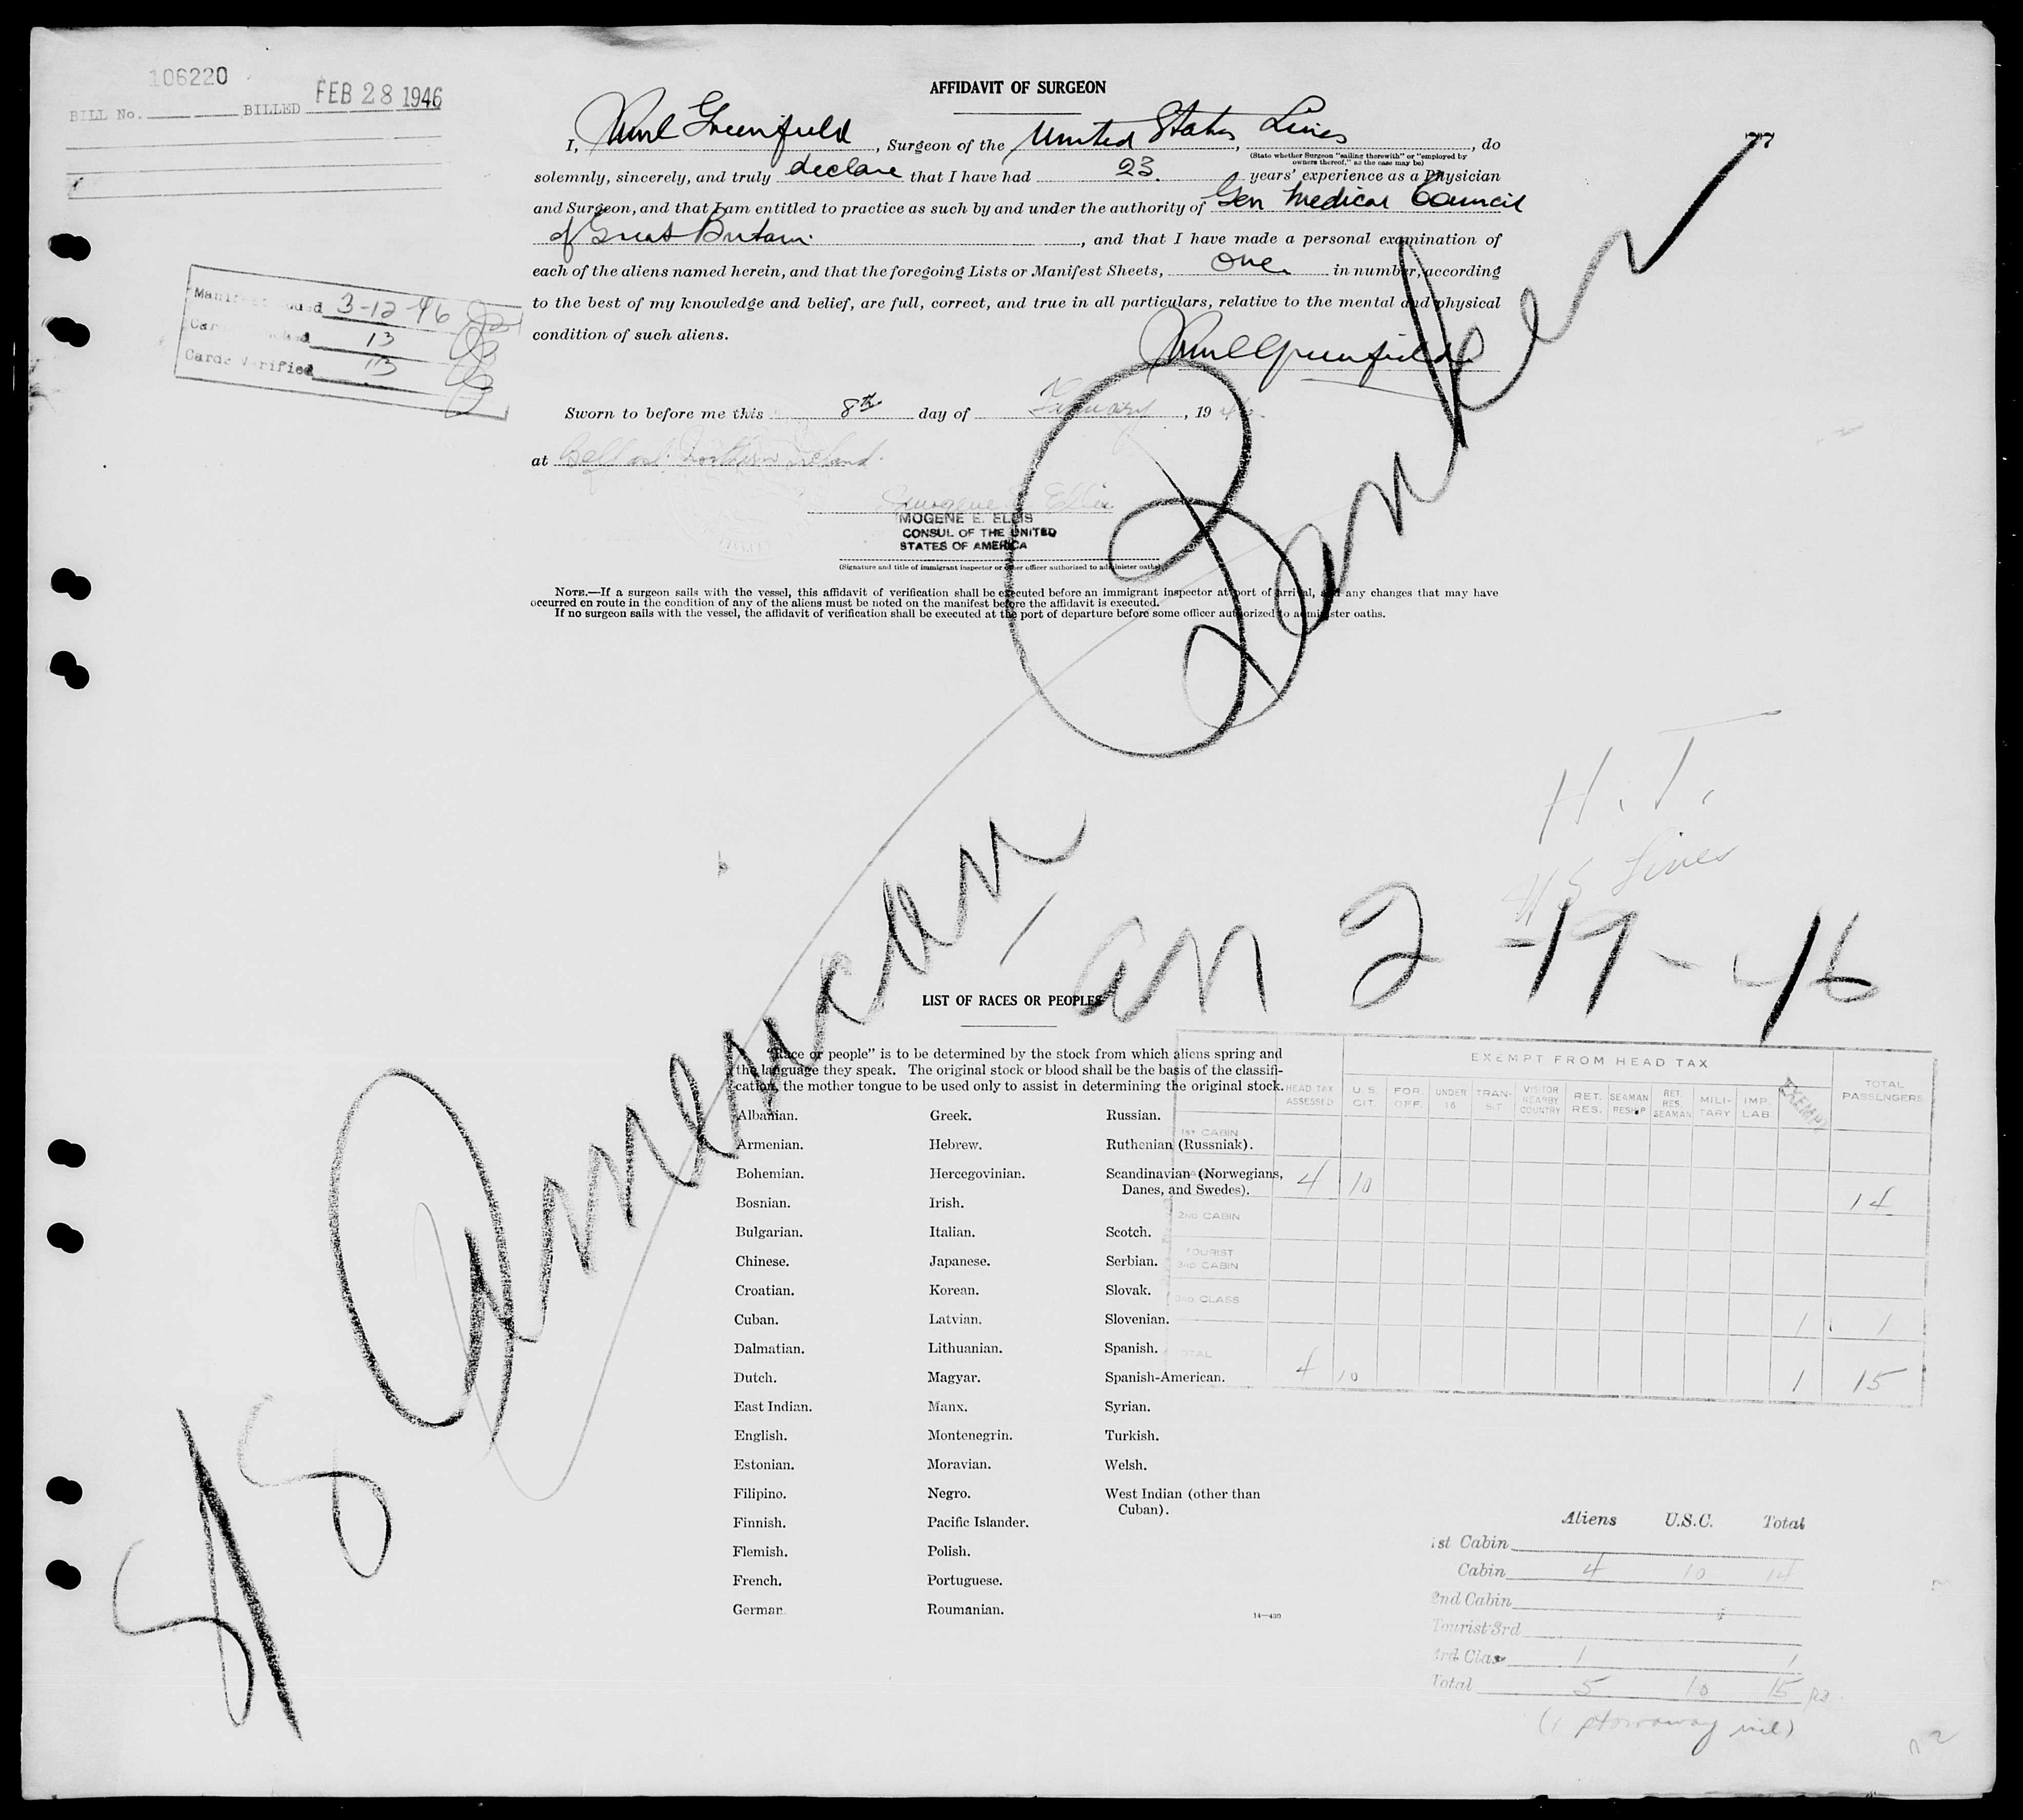 106220
BILL No. BILLED FEB 28 1946
AFFIDAVIT OF SURGEON
I, Greenfield, Surgeon of the United States Lines, do
(State whether Surgeon "sailing therewith" or "employed by owners thereof," as the case may be)
solemnly, sincerely, and truly declare that I have had 23. years' experience as a Physician
and Surgeon, and that I am entitled to practice as such by and under the authority of Gen Medical Council
of Great Britain, and that I have made a personal examination of
each of the aliens named herein, and that the foregoing Lists or Manifest Sheets, One in number, according
to the best of my knowledge and belief, are full, correct, and true in all particulars, relative to the mental and physical
condition of such aliens.
Greenfield
Manifest 3-12-46
13
Cards Verified 13
Sworn to before me this 8th day of February, 1946.
at Belfast, Northern Ireland.
Imogene E. Ellis
IMOGENE E. ELLIS
CONSUL OF THE UNITED
STATES OF AMERICA
(Signature and title of immigrant inspector or other officer authorized to administer oaths)
NOTE.—If a surgeon sails with the vessel, this affidavit of verification shall be executed before an immigrant inspector at port of arrival, and any changes that may have
occurred en route in the condition of any of the aliens must be noted on the manifest before the affidavit is executed.
If no surgeon sails with the vessel, the affidavit of verification shall be executed at the port of departure before some officer authorized to administer oaths.
SS American Banker
H. T.
US Lines
arr 2-19-46
LIST OF RACES OR PEOPLES
"Race or people" is to be determined by the stock from which aliens spring and
the language they speak. The original stock or blood shall be the basis of the classifi-
cation, the mother tongue to be used only to assist in determining the original stock.
Albanian. Greek. Russian.
Armenian. Hebrew. Ruthenian (Russniak).
Bohemian. Hercegovinian. Scandinavian (Norwegians,
Danes, and Swedes).
Bosnian. Irish.
Bulgarian. Italian. Scotch.
Chinese. Japanese. Serbian.
Croatian. Korean. Slovak.
Cuban. Latvian. Slovenian.
Dalmatian. Lithuanian. Spanish.
Dutch. Magyar. Spanish-American.
East Indian. Manx. Syrian.
English. Montenegrin. Turkish.
Estonian. Moravian. Welsh.
Filipino. Negro. West Indian (other than
Cuban).
Finnish. Pacific Islander.
Flemish. Polish.
French. Portuguese.
German. Roumanian.
14—430
EXEMPT FROM HEAD TAX
HEAD TAX ASSESSED U. S. CIT. FOR. OFF. UNDER 16 TRAN-SIT VISITOR NEARBY COUNTRY RET. RES. SEAMAN RESHIP RET. RES. SEAMAN MILI-TARY IMP. LAB. EXEMPT TOTAL PASSENGERS
1ST CABIN
4 10 14
2ND CABIN
TOURIST 3RD CABIN
3RD CLASS
1 1
TOTAL 4 10 1 15
Aliens U.S.C. Total
1st Cabin
Cabin 4 10 14
2nd Cabin
Tourist 3rd
3rd Class 1 1
Total 5 10 15
(1 stowaway incl)